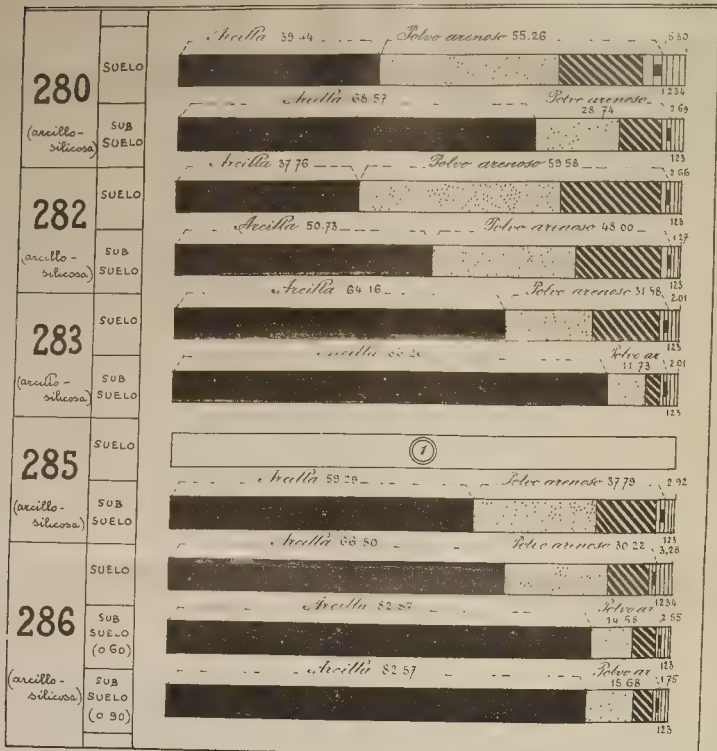 280
(arcillo-
silicosa)
SUELO
Arcilla 39.44 Polvo arenoso 55.26 5.30
1234
SUB
SUELO
Arcilla 68.57 Polvo arenoso
28.74 2.69
123
282
(arcillo-
silicosa)
SUELO
Arcilla 37.76 Polvo arenoso 59.58 2.66
123
SUB
SUELO
Arcilla 50.73 Polvo arenoso 48.00 1.27
123
283
(arcillo-
silicosa)
SUELO
Arcilla 64.16 Polvo arenoso 31.58 2.01
123
SUB
SUELO
Polvo ar
11.73 2.01
123
285
(arcillo-
silicosa)
SUELO
1
SUB
SUELO
Arcilla 59.29 Polvo arenoso 37.79 2.92
123
286
(arcillo-
silicosa)
SUELO
Arcilla 66.50 Polvo arenoso 30.22 3.28
1234
SUB
SUELO
(0.60)
Arcilla 82.87 Polvo ar
14.58 2.55
123
SUB
SUELO
(0.90)
Arcilla 82.57 Polvo ar
15.68 1.75
123